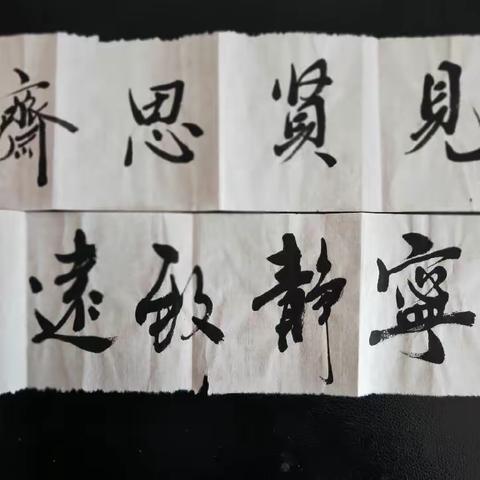 見賢思齋
寧靜致遠